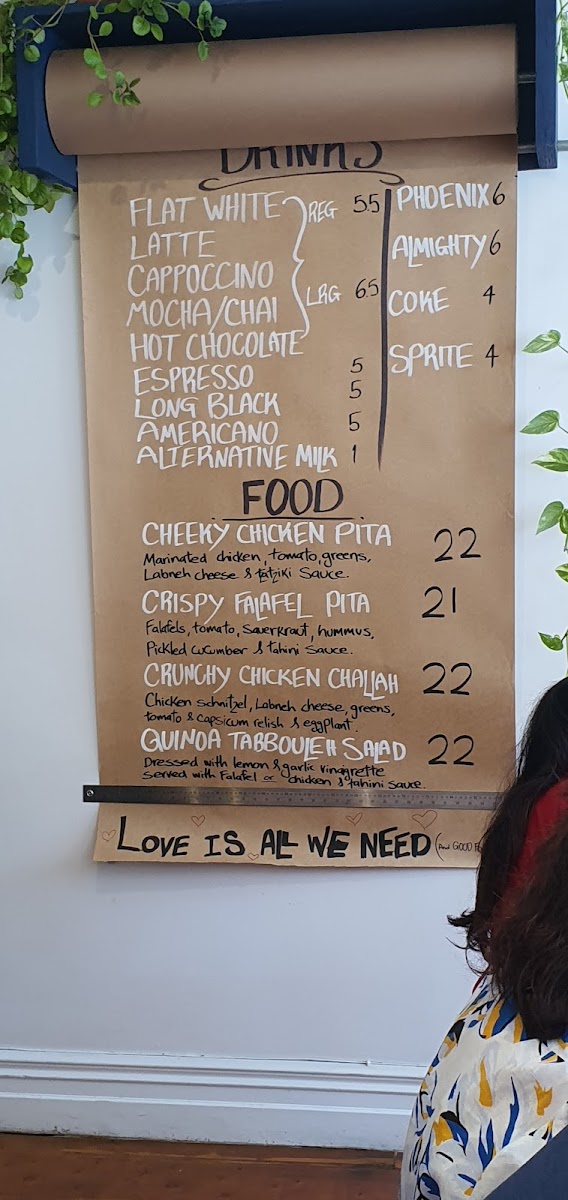 DRINKS
FLAT WHITE REG 5.5 PHOENIX 6
LATTE ALMIGHTY 6
CAPPOCCINO LRG 6.5 COKE 4
MOCHA/CHAI
HOT CHOCOLATE SPRITE 4
ESPRESSO 5
LONG BLACK 5
AMERICANO 5
ALTERNATIVE MILK 1
FOOD
CHEEKY CHICKEN PITA 22
Marinated chicken, tomato, greens,
Labneh cheese & tatziki Sauce.
CRISPY FALAFEL PITA 21
Falafels, tomato, Sauerkraut, hummus,
Pickled cucumber & tahini Sauce.
CRUNCHY CHICKEN CHALLAH 22
Chicken schnitzel, Labneh cheese, greens,
tomato & capsicum relish & eggplant.
QUINOA TABBOULEH SALAD 22
Dressed with lemon & garlic vinaigrette
served with Falafel or chicken & tahini sauce.
LOVE IS ALL WE NEED (And GOOD